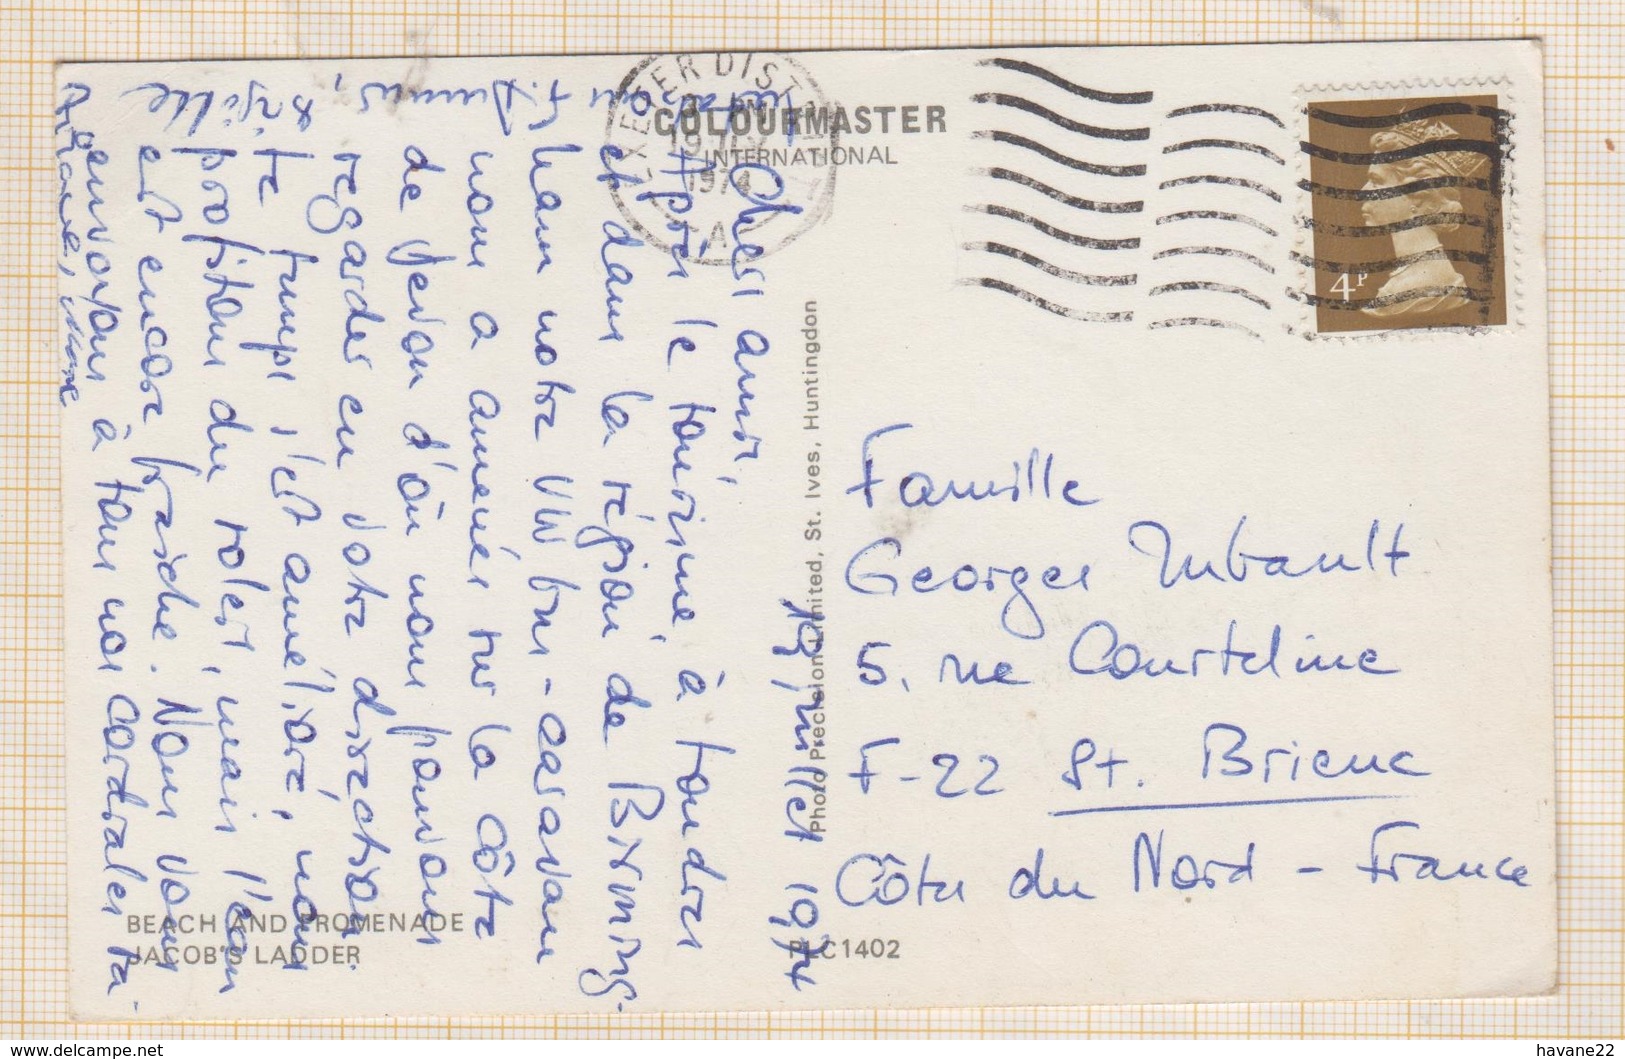 COLOURMASTER
INTERNATIONAL
EXETER DIST
19 JLY
1974
A
4P
19 juillet 1974
Chers amis,
Après le tourisme à Londres
et dans la région de Birming-
ham notre VW bus-caravan
nous a amenés sur la côte
de Devon d'où nous pouvons
regarder en votre direction.
Le temps s'est amélioré, nous
profitons du soleil, mais l'eau
est encore fraîche. Nous vous
envoyons à tous nos cordiales
Famille
Georges Imbault
5, rue Courteline
F-22 St. Brieuc
Côtes du Nord - France
Photo Precision Limited, St. Ives, Huntingdon
BEACH AND PROMENADE
JACOB'S LADDER
PLC1402
havane22